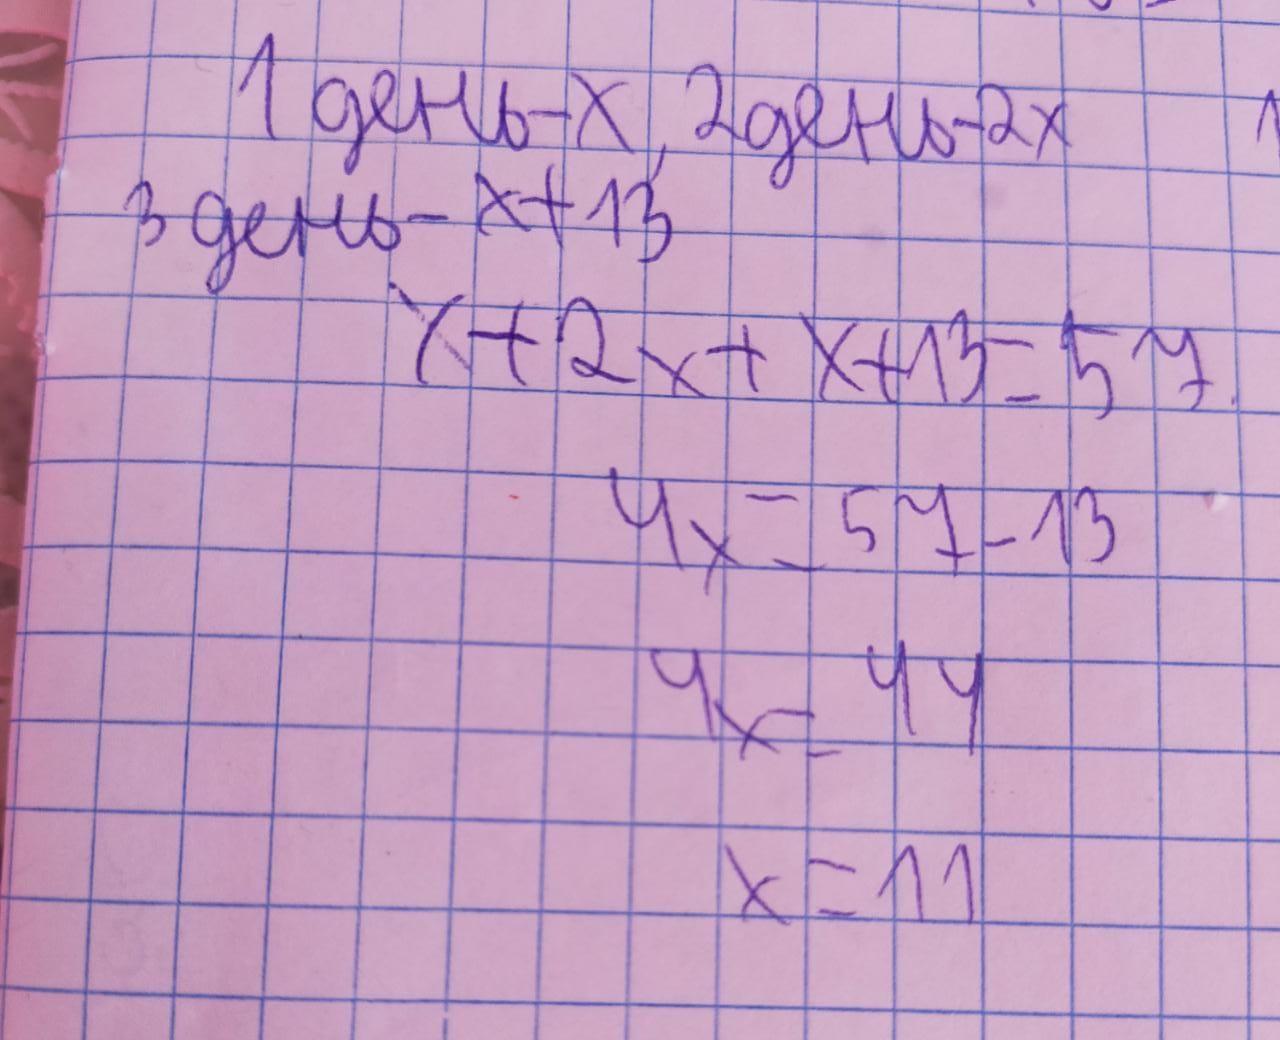 1 день-x, 2 день-2x
3 день-x+13
x+2x+x+13=57
4x=57-13
4x=44
x=11